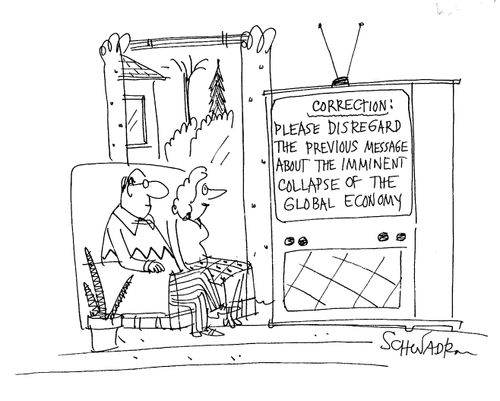 CORRECTION:
PLEASE DISREGARD
THE PREVIOUS MESSAGE
ABOUT THE IMMINENT
COLLAPSE OF THE
GLOBAL ECONOMY
SCHWADRON